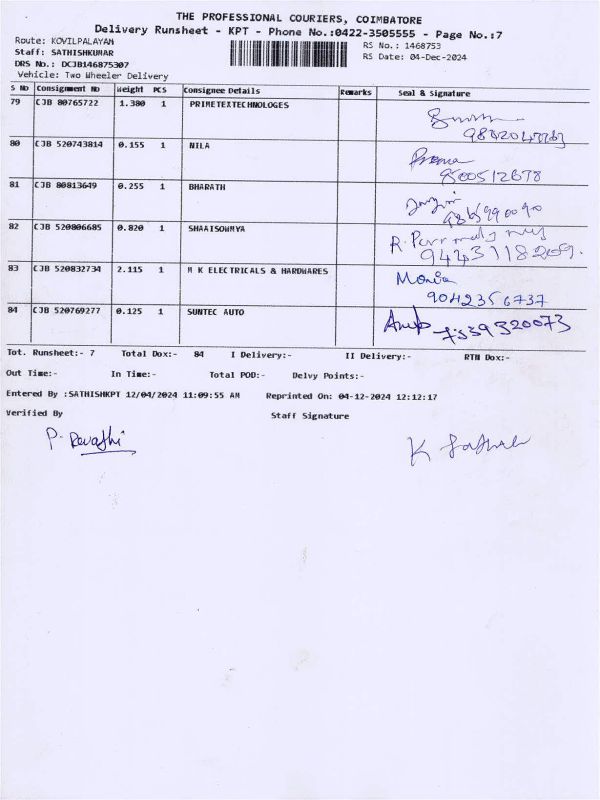 THE PROFESSIONAL COURIERS, COIMBATORE
Delivery Runsheet - KPT - Phone No.:0422-3505555 - Page No.:7
Route: KOVILPALAYAM
RS No.: 1468753
Staff: SATHISHKUMAR
RS Date: 04-Dec-2024
DRS No.: DCJB146875307
Vehicle: Two Wheeler Delivery
S No Consignment No Weight PCS Consignee Details Remarks Seal & Signature
79 CJB 80765722 1.380 1 PRIMETEXTECHNOLOGES
80 CJB 520743814 0.155 1 NILA
9500512678
81 CJB 80813649 0.255 1 BHARATH
82 CJB 520806685 0.820 1 SHAAISOWMYA
R.
9443118209.
83 CJB 520832734 2.115 1 M K ELECTRICALS & HARDWARES Monia
9042356737
84 CJB 520769277 0.125 1 SUNTEC AUTO
Tot. Runsheet:- 7 Total Dox:- 84 I Delivery:- II Delivery:- RTN Dox:-
Out Time:- In Time:- Total POD:- Delvy Points:-
Entered By :SATHISHKPT 12/04/2024 11:09:55 AM Reprinted On: 04-12-2024 12:12:17
Verified By Staff Signature
P. Revathi K